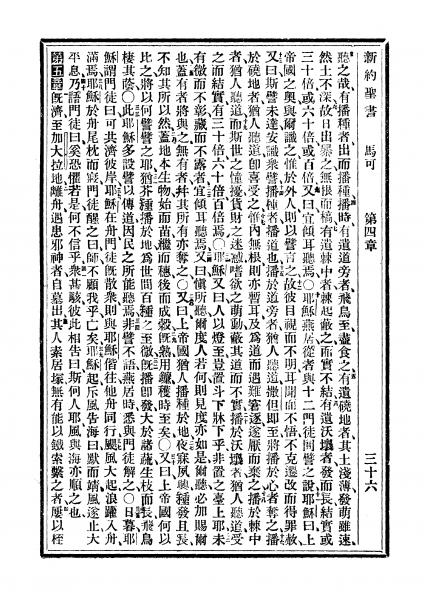 新約聖書 馬可 第四章 三十六
聽之哉有播種者出而播種播時有遺道旁者飛鳥至盡食之有遺磽地者其土淺薄發萌雖速
然土不深故日出暴之無根而槁有遺棘中者棘起蔽之而實不結有遺沃壤者發而長結實或
三十倍或六十倍或百倍又曰宜傾耳聽焉〇耶穌燕居從者與十二門徒問譬之說耶穌曰上
帝國之奧與爾識之惟於外人則以譬言之故彼目視而不明耳聞而不悟不克遷改而得罪赦
又曰斯譬未達安識衆譬播種者播道也播於道旁者猶人聽道撒但即至將播於心者奪之播
於磽地者猶人聽道即喜受之惟內無根則亦暫耳及爲道而遇難窘逐遂厭而棄之播於棘中
者猶人聽道而斯世之憧擾貨財之迷惑嗜欲之萌動蔽其道而不實播於沃壤者猶人聽道受
之而結實有三十倍六十倍百倍焉〇耶穌又曰人以燈至豈置斗下牀下乎非置之臺上耶未
有微而不彰藏而不露者宜傾耳聽焉又曰愼所聽爾度人若何則見度亦如是爾聽必加賜爾
也蓋有者將與之無有者幷其所有亦奪之〇又曰上帝國猶人播種於地夜寐夙興種發且長
不知其所以然蓋地本生物始而苗繼而穗後而成穀既熟用鐮穫時至矣〇又曰上帝國何以
比之將以何譬譬之耶猶芥種播於地爲世間百種之至微既播即發大於諸蔬生枝而長飛鳥
棲其蔭〇此耶穌多設譬以傳道因民之所能聽焉非譬不語燕居時悉與門徒解之〇日暮耶
穌謂門徒曰可共濟彼岸耶穌在舟門徒既散衆則與耶穌偕往他舟同行颶風大起浪躍入舟
滿焉耶穌於舟尾枕而寢門徒醒之曰師不顧我乎亡矣耶穌起斥風告海曰默而靖風遂止大
平息乃語門徒曰奚恐懼若是何不信乎衆甚駭彼此相告曰斯何人耶風與海亦順之也
第五章既濟至加大拉地離舟遇患邪神者自墓出其人素居塚無有能以鐵索繫之者屢以桎